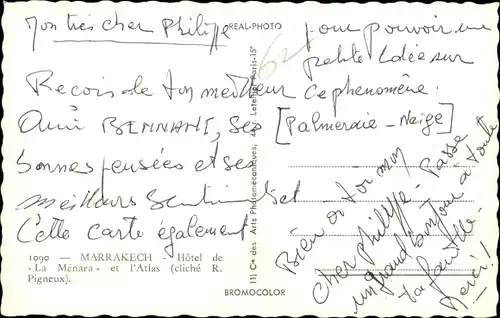 Mon très cher Philippe
Reçois de ton meilleur
Ami BENNANI, ses
bonnes pensées et ses
meilleurs Sentiments et
Cette carte également
pour pouvoir une
petite Idée sur
ce phénomène.
[Palmeraie - Neige]
Bien à toi mon
cher philippe - Passe
un grand bonjour à toute
ta famille -
Merci !
62
REAL-PHOTO
Cie des Arts Photomécaniques, Paris-15e
BROMOCOLOR
1090 — MARRAKECH — Hôtel de
« La Ménara » et l'Atlas (cliché R.
Pigneux).